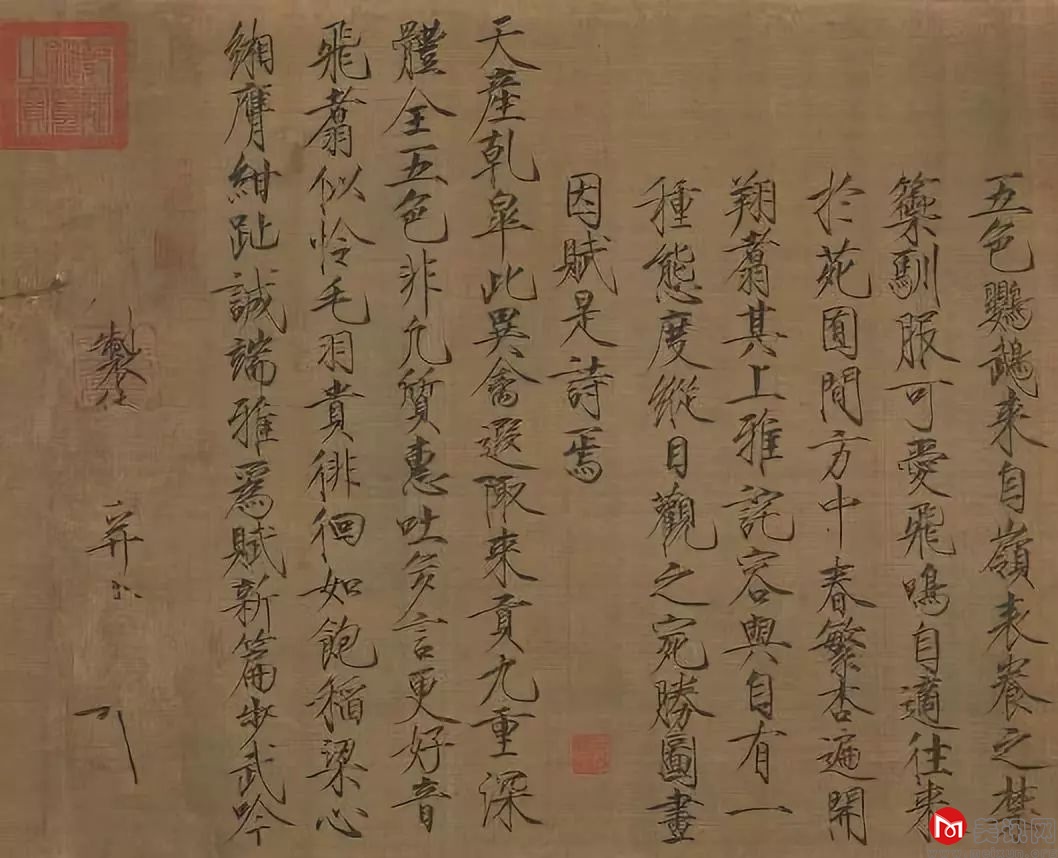 五色鸚鵡來自嶺表養之禁
籞馴服可愛飛鳴自適往來
於苑囿間方中春繁杏遍開
翔翥其上雅詫容與自有一
種態度縱目觀之宛勝圖畫
因賦是詩焉
天產乾皐此異禽遐陬來貢九重深
體全五色非凡質惠吐多言更好音
飛翥似憐毛羽貴徘徊如飽稻粱心
緗膺紺趾誠端雅爲賦新篇步武吟
製